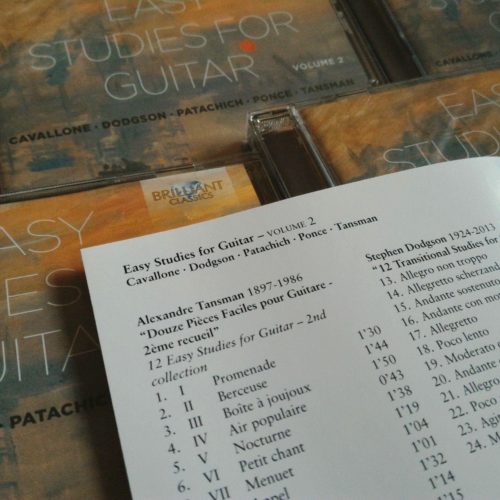 EASY
STUDIES FOR
GUITAR
VOLUME 2
CAVALLONE · DODGSON · PATACHICH · PONCE · TANSMAN
EASY
STUDIES
GUITAR
CAVALLONE
BRILLIANT
CLASSICS
EASY
GUITA
PATACHICH
Easy Studies for Guitar – VOLUME 2
Cavallone · Dodgson · Patachich · Ponce · Tansman
Alexandre Tansman 1897-1986
"Douze Pièces Faciles pour Guitare -
2ème recueil"
12 Easy Studies for Guitar – 2nd
collection
1. I Promenade 1'30
2. II Berceuse 1'44
3. III Boîte à joujoux 1'50
4. IV Air populaire 0'43
5. V Nocturne 1'38
6. VI Petit chant 1'19
7. VII Menuet 1'04
1'01
1'32
1'14
Stephen Dodgson 1924-2013
"12 Transitional Studies for
13. Allegro non troppo
14. Allegretto scherzan
15. Andante sostenuto
16. Andante con mo
17. Allegretto
18. Poco lento
19. Moderato e
20. Andante
21. Allegre
22. Poco
23. Ag
24. M